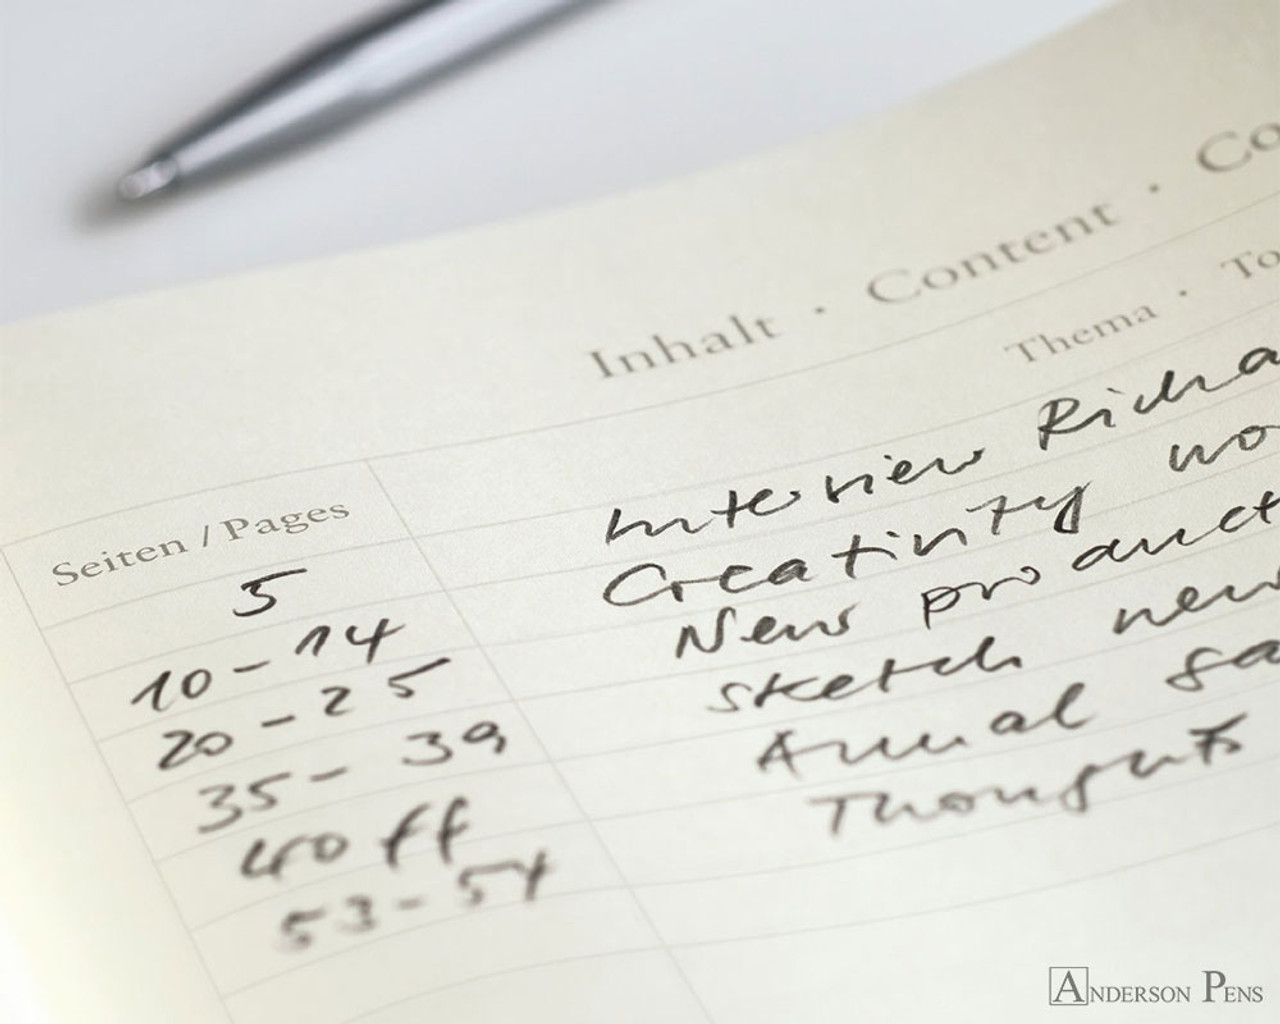 Inhalt · Content · Co
Seiten / Pages Thema · To
5 Interview Richa
10 - 14 Creativity wo
20 - 25 New product
35 - 39 sketch new
40 ff Annual ga
53 - 54 Thoughts
ANDERSON PENS